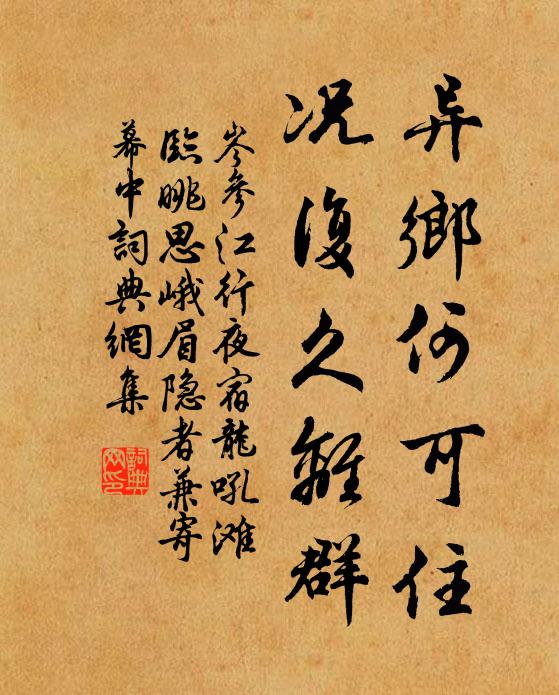 异鄉何可住
况復久離群
岑參江行夜宿龍吼滩
臨眺思峨眉隐者兼寄
幕中詞典網集
詞典
网印